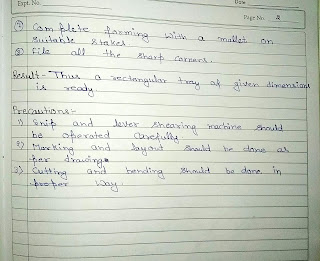 Expt. No.
Date
Page No. 2
⑦ Complete forming with a mallet on
suitable stakes
⑧ File all the sharp corners.
Result:- Thus a rectangular tray of given dimensions
is ready.
Precautions:-
1) Snip and lever shearing machine should
be operated carefully
2) Marking and layout should be done as
per drawing.
3) Cutting and bending should be done in
proper way.